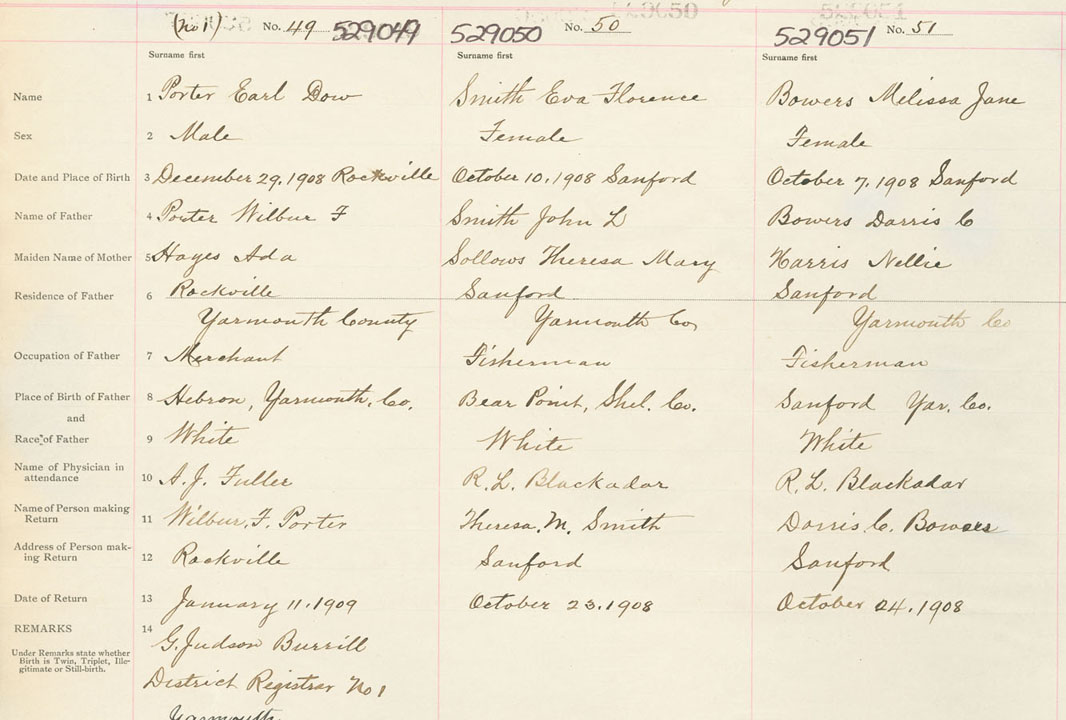 (No 1) No. 49 529049 529050 No. 50 529051 No. 51
Surname first Surname first Surname first
Name 1 Porter Earl Dow Smith Eva Florence Bowers Melissa Jane
Sex 2 Male Female Female
Date and Place of Birth 3 December 29, 1908 Rockville October 10, 1908 Sanford October 7, 1908 Sanford
Name of Father 4 Porter Wilbur F Smith John L Bowers Dorris C
Maiden Name of Mother 5 Hayes Ada Sollows Theresa Mary Harris Nellie
Residence of Father 6 Rockville Sanford Sanford
Yarmouth County Yarmouth Co, Yarmouth Co
Occupation of Father 7 Merchant Fisherman Fisherman
Place of Birth of Father 8 Hebron, Yarmouth, Co. Bear Point, Shel. Co. Sanford Yar. Co.
and
Race of Father 9 White White White
Name of Physician in
attendance 10 A. J. Fuller R. L. Blackadar R. L. Blackadar
Name of Person making
Return 11 Wilbur, F. Porter Theresa, M. Smith Dorris, C. Bowers
Address of Person mak-
ing Return 12 Rockville Sanford Sanford
Date of Return 13 January 11, 1909 October 23, 1908 October 24, 1908
REMARKS 14 G. Judson Burrill
Under Remarks state whether
Birth is Twin, Triplet, Ille-
gitimate or Still-birth.
District Registrar No 1
Yarmouth.